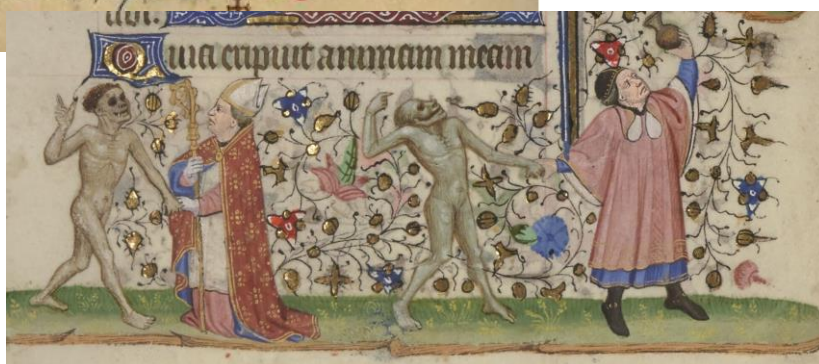 tibi.
Quia eripuit animam meam